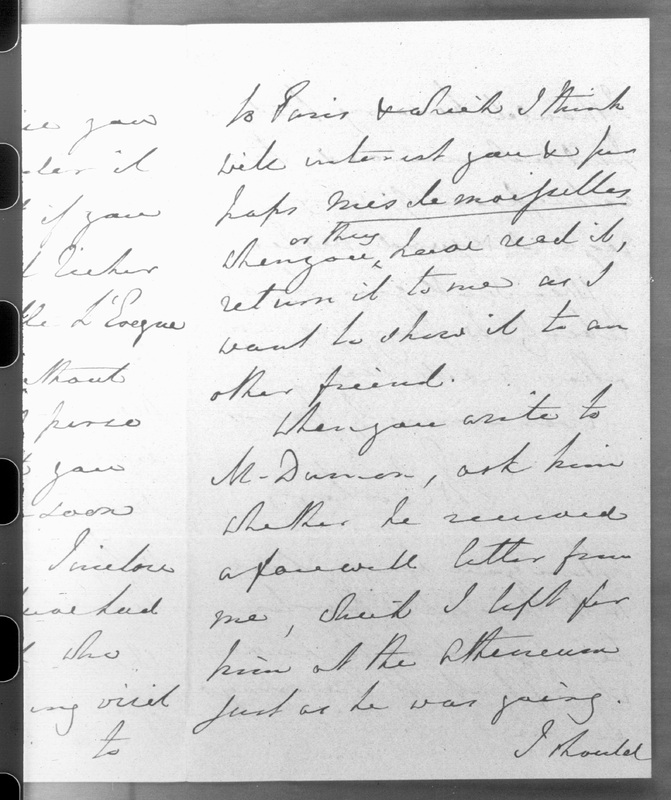 ise you
der it
t if you
d Richer
the L'Evèque
ithout
perse
t you
soon
I inclose
have had
who
ing visit
to
to Paris & which I think
will interest you & per
haps Mesdemoiselles
when you or they have read it,
return it to me as I
want to show it to an
other friend.
When you write to
M. Dumon, ask him
whether he received
a farewell letter from
me, which I left for
him at the Atheneum
just as he was going.
I should